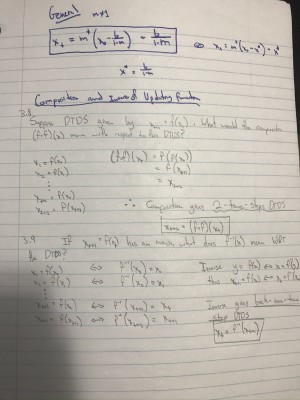 General m≠1
x_t = m^t (x_0 - b/(1-m)) + b/(1-m) ⇔ x_t = m^t (x_0 - x*) + x*
x* = b/(1-m)
Composition and Inverse of Updating function
3.8 Suppose DTDS given by x_{t+1} = f(x_t). What would the composition
(f∘f)(x) mean with respect to this DTDS?
x_1 = f(x_0) (f∘f)(x_t) = f(f(x_t))
x_2 = f(x_1) = f(x_{t+1})
⋮ = x_{t+2}
x_{t+1} = f(x_t)
x_{t+2} = f(x_{t+1}) ∴ Composition gives 2-time-steps DTDS
x_{t+2} = (f∘f)(x_t)
3.9 If x_{t+1} = f(x_t) has an inverse, what does f^{-1}(x) mean WRT
the DTDS?
x_1 = f(x_0) ⇔ f^{-1}(x_1) = x_0 Inverse y = f(x) ⇔ x = f^{-1}(y)
x_2 = f(x_1) ⇔ f^{-1}(x_2) = x_1 thus x_{t+1} = f(x_t) ⇔ x_t = f^{-1}(x_{t+1})
⋮
x_{t+1} = f(x_t) ⇔ f^{-1}(x_{t+1}) = x_t Inverse gives back-one-time
x_{t+2} = f(x_{t+1}) ⇔ f^{-1}(x_{t+2}) = x_{t+1} step DTDS
x_t = f^{-1}(x_{t+1})